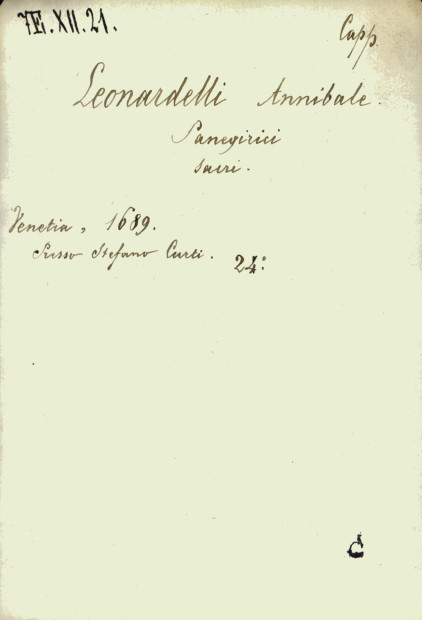 7E.XII.21.
Capp.
Leonardelli Annibale.
Panegirici
sacri.
Venetia, 1689.
Presso Stefano Curti.
24:°
C